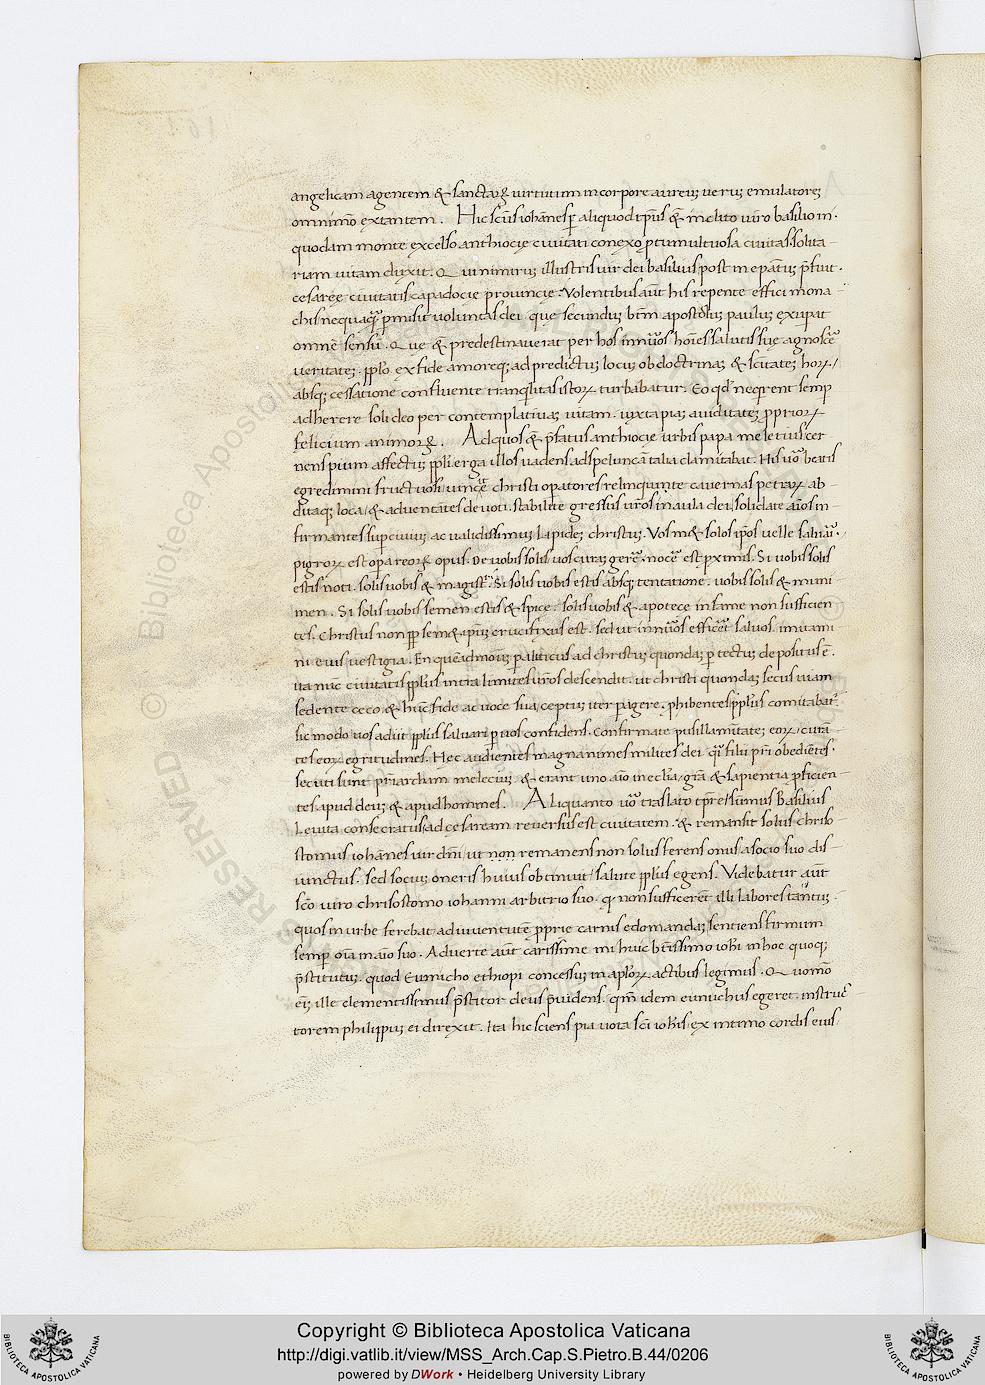 angelicam agentem & sanctarȝ virtutum in corpore aureus uerus emulatores
omnimō extantem. Hic scūs iohāes p̱ aliquod tp̄us q̄ inclito uiro basilio in
quodam monte excelso anthiocie ciuitati conexo ꝓ tumultuosa ciuitas solita-
riam uitam duxit. Qui nimirum illustris uir dei basilius post in ep̄atus p̄fuit.
cesaree ciuitatis capadocie prouincie. Volentibus aūt his repente effici mona-
chis nequaq̄ȝ p̱misit uoluntas dei que secundus btm apostolus paulus exupat
omnē sensū. Que & predestinauerat per hos innūos hōies salutis sue agnoscē
ueritates. pplo ex fide amoreqȝ ad predictus locus ob doctrinas & scītates horꝝ
absqȝ cessatione confluente tranq̄litas istorꝝ turbabatur. Eo qd̄ neq̄rent semp̱
adherere soli deo per contemplatiuas uitam. iuxta pias auiditates ꝓpriorꝝ
felicium animorȝ. Ad quos q̄ p̄fatus anthiocie urbis papa meletius cer-
nens pium affectus ppli erga illos uadens ad speluncā talia clamitabat. His uō beatis
egredimini fructuosi uinceȩ christi op̱atores relinquite cauernas petrarꝝ ab-
ditaqȝ loca & aduentātes deuoti. stabilite gressus uros in aula dei. solidate aīos in-
firmantes sup̱ uiuus ac ualidissimus lapides christus. Vosm& solos ipos uelle saluari
pigrorꝝ est op̱areorȝ opus. De uobis solis uos curas gerē. nocē est ꝓximis. Si uobis solis
estis noti. solis uobis & magistri. Si solis uobis estis absqȝ tentatione. uobis solis & muni-
men. Si solis uobis semen estis & spice. solis uobis & apotece in fame non sufficien-
tes. Christus non pp̱ sem& ipsus crucifixus est. sed ut innūos efficēt saluos. imitami-
ni eius uestigia. En quēadmodū p̱aliticus ad christus quondas p̱ tectus depositus ē.
ita nūc ciuitatis pplus intra limites uros descendit. ut christi quondas secus uiam
sedente ceco & huic fide ac uoce sua ceptus iter pagere. phibentes pplus comitabat.
sic modo uos adiit pplus saluari p̱ uos confidens. Confirmate pusillamitates eorꝝ curā-
tes eorꝝ egritudines. Hec audientes magnanimes milites dei. q̄si filii p̄ri obediētes.
secuti sunt p̄riarcham melecius & erant uno aīo in eccl̄ia grā & sapientia ꝓficien-
tes apud deus & apud homines. Aliquanto uō traslato tp̄re summus Basilius
Leuita consecratus ad cesaream reuersus est ciuitatem. & remansit solus chriso-
stomus iohānes uir dn̄i ut non remanens non solus ferens onus a socio suo dis-
iunctus. sed socius oneris huius obtinuit salute pplus egens. Videbatur aūt
scō uiro chrisostomo iohanni arbitrio suo. q̄ non sufficeret illi labores tantus
quos in urbe ferebat adiuuentutē ꝓprie carnis edomandas sentiens firmum
semp̱ oīa in aīo suo. Aduerte aūt carissime mi huic btissimo iohi in hoc quoqȝ
p̄stitutus. quod Eunucho ethiopi concessus in aplorꝝ actibus legimus. Quomō
eīs ille clementissimus p̄stitor deus ꝓuidens. qm̄ idem eunuchus egeret. instruc-
torem philippus ei direxit. Ita hic sciens pia uota sci iohis ex intimo cordis eius
Copyright © Biblioteca Apostolica Vaticana
http://digi.vatlib.it/view/MSS_Arch.Cap.S.Pietro.B.44/0206
powered by DWork • Heidelberg University Library
BIBLIOTECA APOSTOLICA VATICANA
BIBLIOTECA APOSTOLICA VATICANA